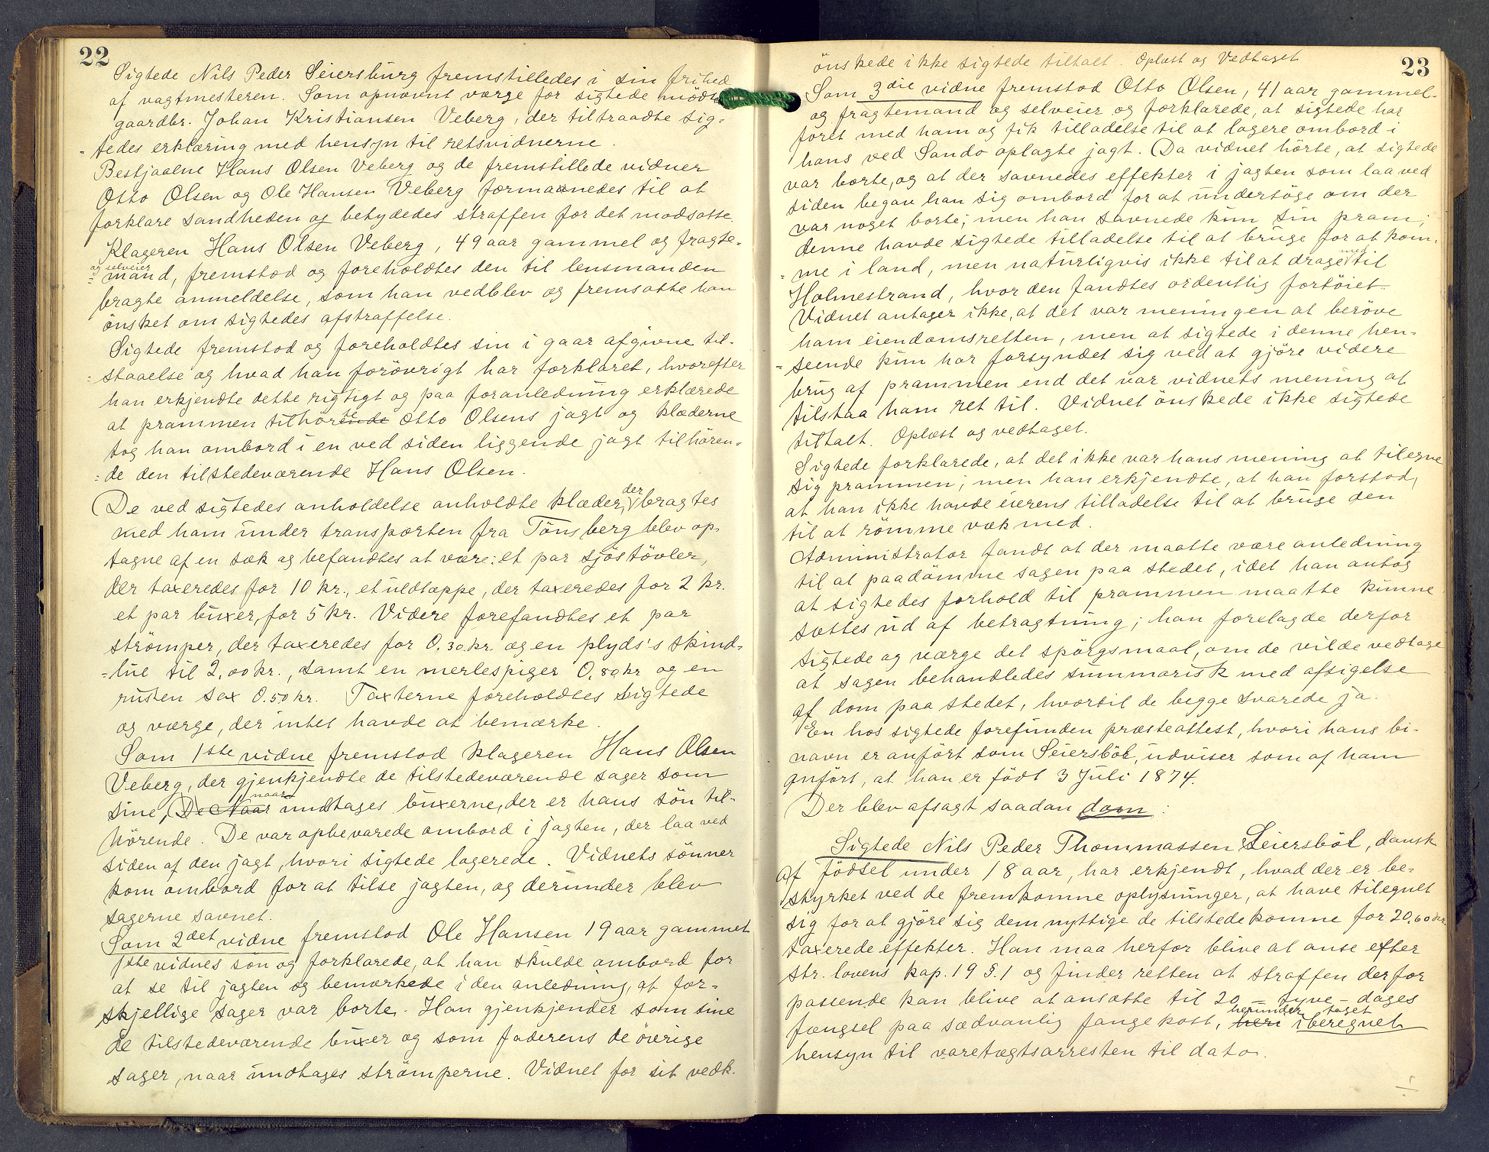 22
Sigtede Nils Peder Seiersburg fremstilledes i sin frihed
af vagtmesteren. Som opnævnt værge for sigtede mødte
gaardbr. Johan Kristiansen Veberg, der tiltraadte sig-
-tedes erklæring med hensyn til retsvidnerne.
Bestjaalne Hans Olsen Veberg og de fremstillede vidner
Otto Olsen og Ole Hansen Veberg formanedes til at
forklare sandheden og betydedes straffen for det modsatte.
Klageren Hans Olsen Veberg, 49 aar gammel og fragte-
og selveier
-mand, fremstod og foreholdtes den til lensmanden
bragte anmeldelse, som han vedblev og fremsatte han
ønsket om sigtedes afstraffelse.
Sigtede fremstod og foreholdtes sin i gaar afgivne til-
-staaelse og hvad han forøvrigt har forklaret, hvorefter
han erkjendte dette rigtigt og paa foranledning erklærede
at prammen tilhørende Otto Olsens jagt og klæderne
tog han ombord i en ved siden liggende jagt tilhøren-
-de den tilstedeværende Hans Olsen.
De ved sigtedes anholdelse anholdte klæder, der bragtes
med ham under transporten fra Tönsberg blev op-
tagne af en sæk og befandtes at være: et par sjöstövler,
der taxeredes for 10 kr., et uldtæppe, der taxeredes for 2 kr.
et par buxer, for 5 kr. Videre forefandtes et par
strömper, der taxeredes for 0.30 kr. og en plyds's skind-
-lue til 2,00 kr., samt en merlespiger 0,80 kr og en
rusten sax 0.50 kr. Taxterne foreholdtes sigtede
og værge, der intet havde at bemærke.
Som 1ste vidne fremstod klageren Hans Olsen
Veberg, der gjenkjendte de tilstedeværende sager som
sine, De Naar naar undtages buxerne, der er hans sön til-
hörende. De var opbevarede ombord i jagten, der laa ved
siden af den jagt, hvori sigtede lagerede. Vidnets sönner
kom ombord for at tilse jagten, og derunder blev
sagerne savnet.
Som 2det vidne fremstod Ole Hansen 19 aar gammel
1ste vidnes søn og forklarede, at han skulde ombord for
at se til jagten og bemærkede i den anledning, at for-
skjellige sager var borte. Han gjenkjender som sine
de tilstedeværende buxer og som faderens de øvrige
sager, naar undtages strømperne. Vidnet for sit vedk.
23
önskede ikke sigtede tiltalt. Oplæst og Vedtaget
Som 3die vidne fremstod Otto Olsen, 41 aar gammel
og fragtemand og selveier og forklarede, at sigtede har
faret med ham og fik tilladelse til at lagere ombord i
hans ved Sando oplagte jagt. Da vidnet hörte, at sigtede
var borte, og at der savnedes effekter i jagten som laa ved
siden begav han sig ombord for at undersöge om der
var noget borte; men han savnede kun sin pram;
denne havde sigtede tilladelse til at bruge for at kom-
-me i land, men naturligvis ikke til at drage med til
Holmestrand, hvor den fandtes ordentlig fortöiet.
Vidnet antager ikke, at det var meningen at beröve
ham eiendomsretten, men at sigtede i denne hen-
-seende kun har forsyndet sig ved at gjöre videre
brug af prammen end det var vidnets mening at
tilstaa ham ret til. Vidnet önskede ikke sigtede
tiltalt. Oplæst og vedtaget.
Sigtede forklarede, at det ikke var hans mening at tilegne
sig prammen; men han erkjendte, at han forstod,
at han ikke havde eierens tilladelse til at bruge den
til at römme væk med.
Administrator fandt at der maatte være anledning
til at paadömme sagen paa stedet, idet han antog
at sigtedes forhold til prammen maatte kunne
sættes ud af betragtning; han forelagde derfor
sigtede og værge det spörgsmaal, om de vilde vedtage
at sagen behandledes summarisk med afsigelse
af dom paa stedet, hvortil de begge svarede ja.
En hos sigtede forefunden præsteattest, hvori hans bi-
navn er anfört som Seiersböl, udviser som af ham
anfört, at han er födt 3 Juli 1874.
Der blev afsagt saadan dom:
Sigtede Nils Peder Thommassen Seiersböl, dansk
af födsel under 18 aar, har erkjendt, hvad der er be-
styrket ved de fremkomne oplysninger, at have tilegnet
sig for at gjöre sig dem nyttige de tilstedekomne for 20,60 kr
taxerede effekter. Han maa herfor blive at anse efter
str. lovens kap. 19 § 1 og finder retten at straffen derfor
passende kan blive at ansætte til 20 – tyve – dages
fængsel paa sædvanlig fangekost, heri herunder taget i beregnet
hensyn til varetægtsarresten til dato.